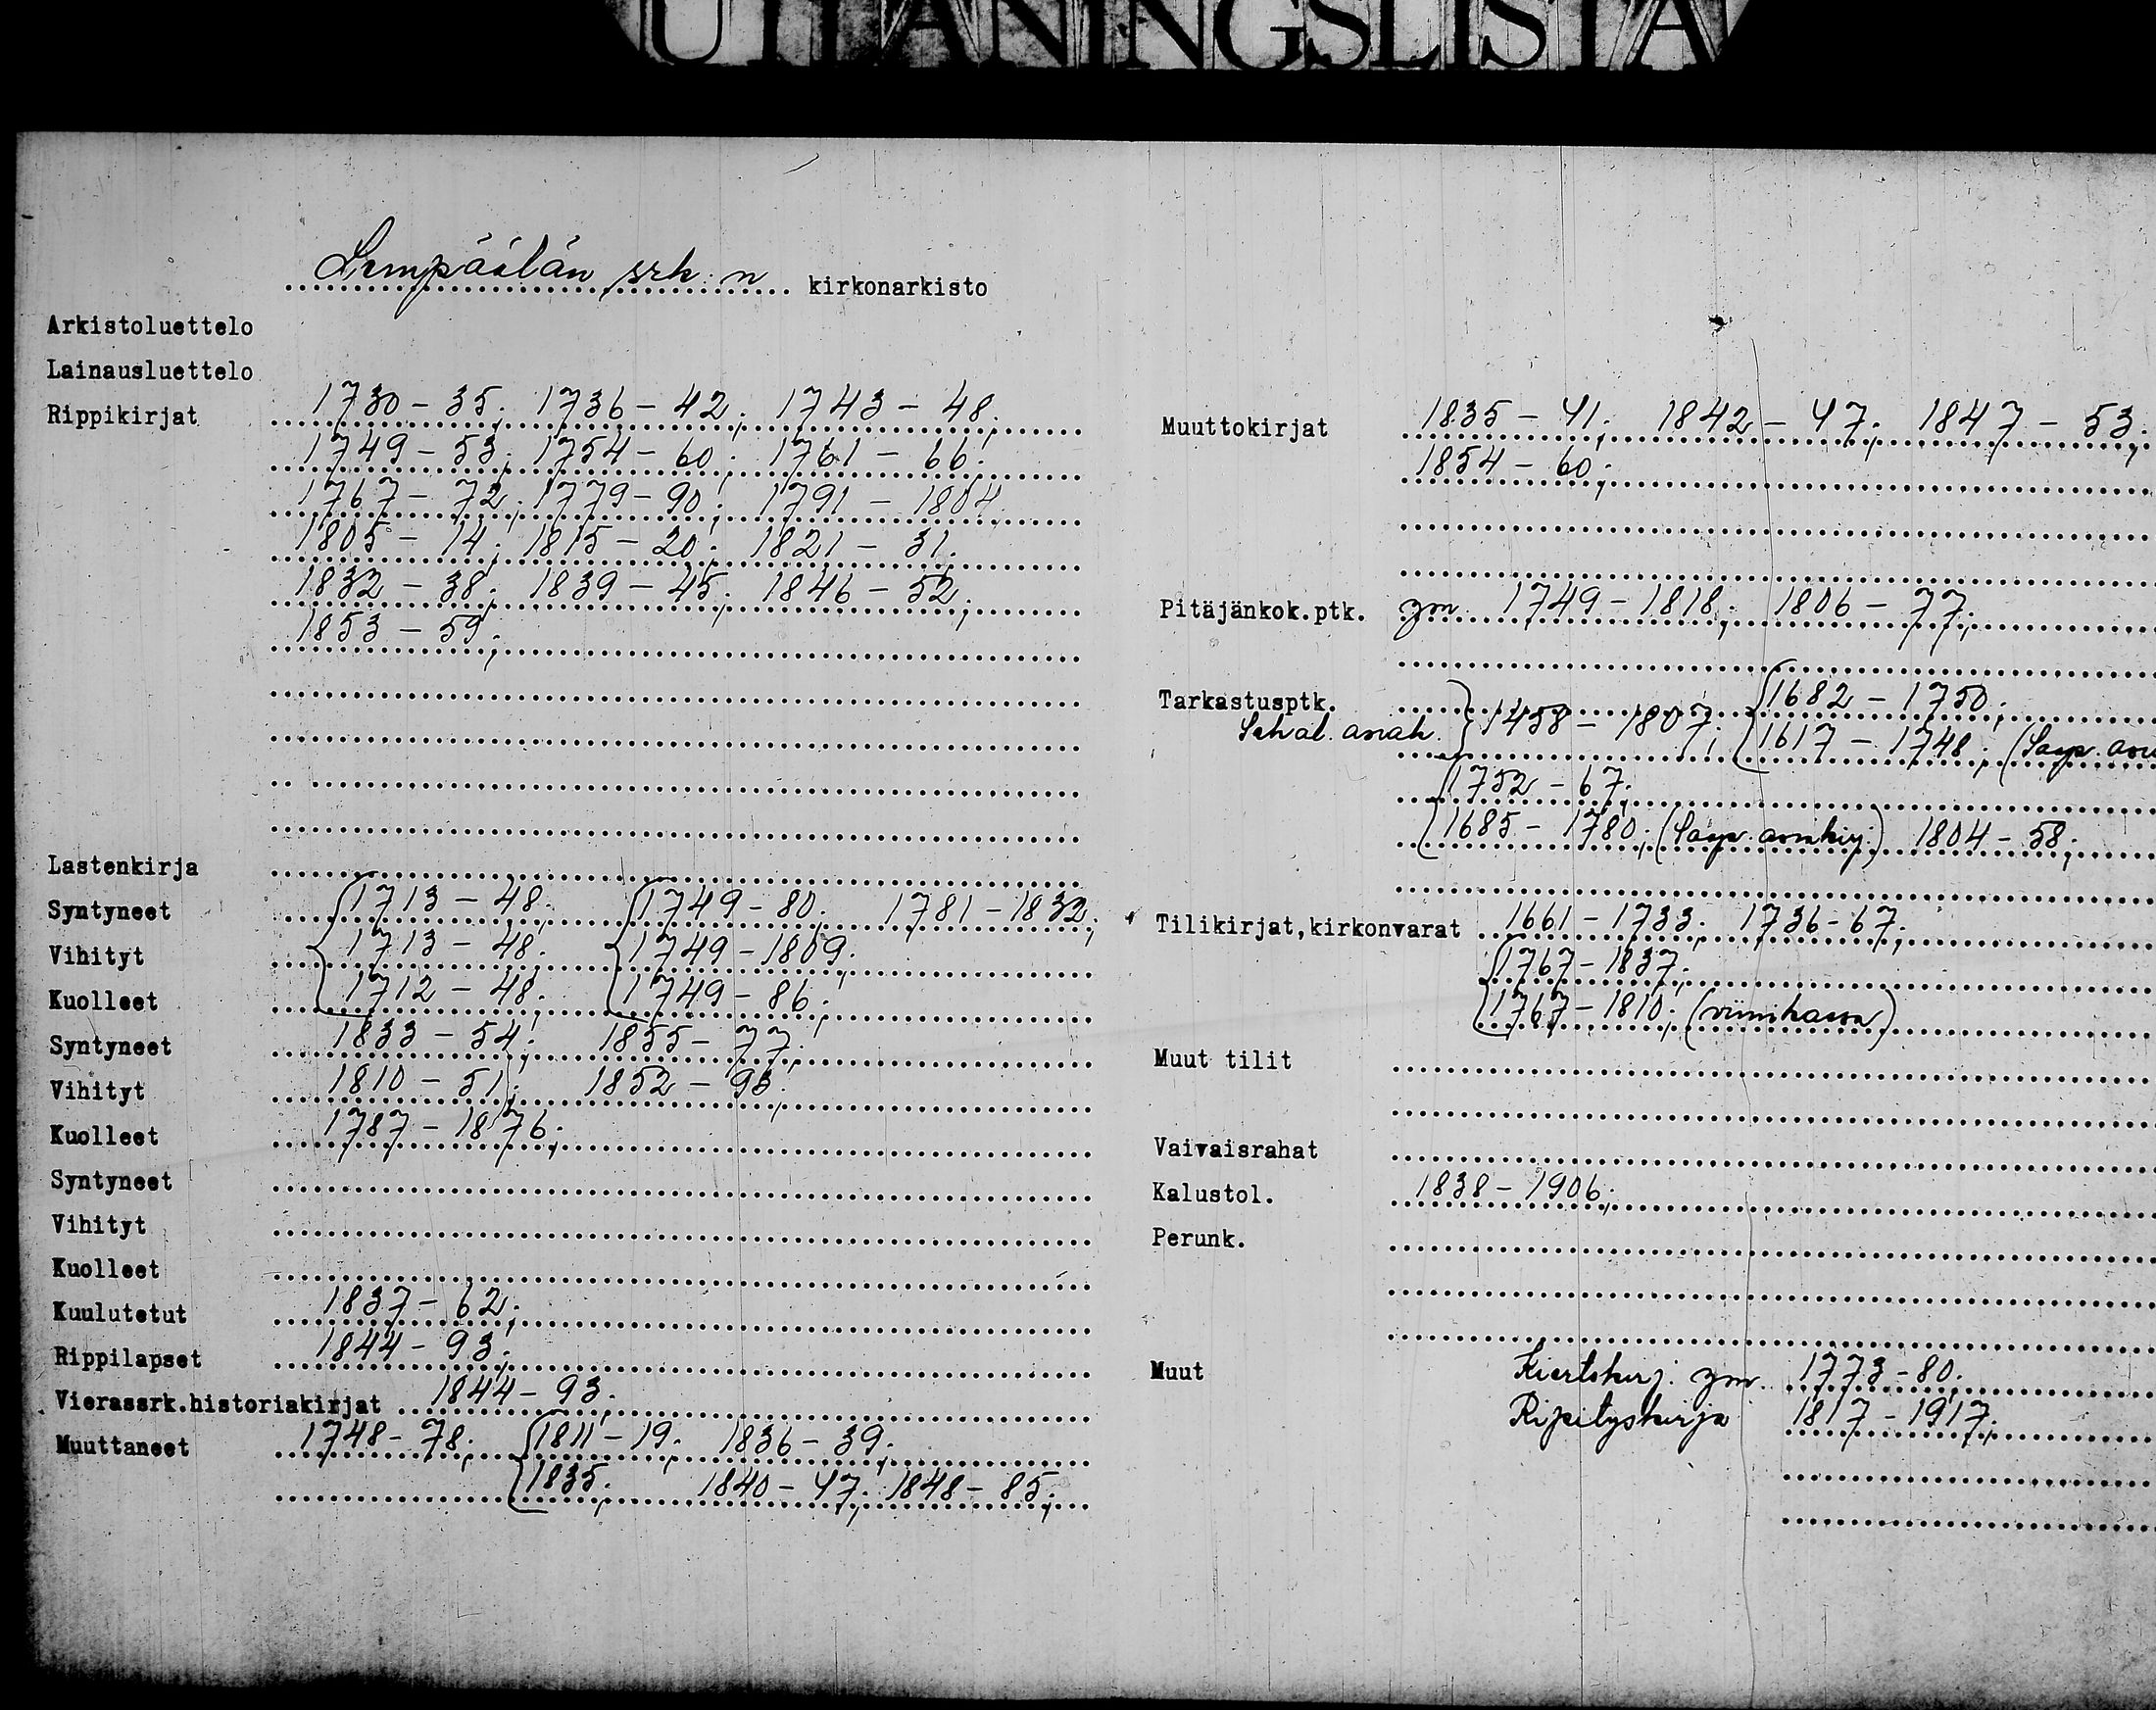 UTTANINGSLISTA
Lempäälän srk:n kirkonarkisto
Arkistoluettelo
Lainausluettelo
Rippikirjat 1730-35; 1736-42; 1743-48;
1749-53; 1754-60; 1761-66;
1767-72; 1779-90; 1791-1804;
1805-14; 1815-20; 1821-31;
1832-38; 1839-45; 1846-52;
1853-59;
Lastenkirja
Syntyneet 1713-48; 1749-80; 1781-1832;
Vihityt 1713-48; 1749-1809;
Kuolleet 1712-48; 1749-86;
Syntyneet 1833-54; 1855-77;
Vihityt 1810-51; 1852-93;
Kuolleet 1787-1876;
Syntyneet
Vihityt
Kuolleet
Kuulutetut 1837-62;
Rippilapset 1844-93;
Vierassrk.historiakirjat 1844-93;
Muuttaneet 1748-78; 1811-19; 1836-39;
1835; 1840-47; 1848-85;
Muuttokirjat 1835-41; 1842-47; 1847-53;
1854-60;
Pitäjänkok.ptk. ym 1749-1818; 1806-77;
Tarkastusptk. 1682-1750;
Sekal. asiak. 1458-1807; 1617-1748;
1752-67;
1685-1780; 1804-58;
Tilikirjat,kirkonvarat 1661-1733; 1736-67;
1767-1837;
1767-1810; (viinikassa)
Muut tilit
Vaivaisrahat
Kalustol. 1838-1906;
Perunk.
Muut Kiertokirj. ym. 1773-80;
Ripityskirja 1817-1917;